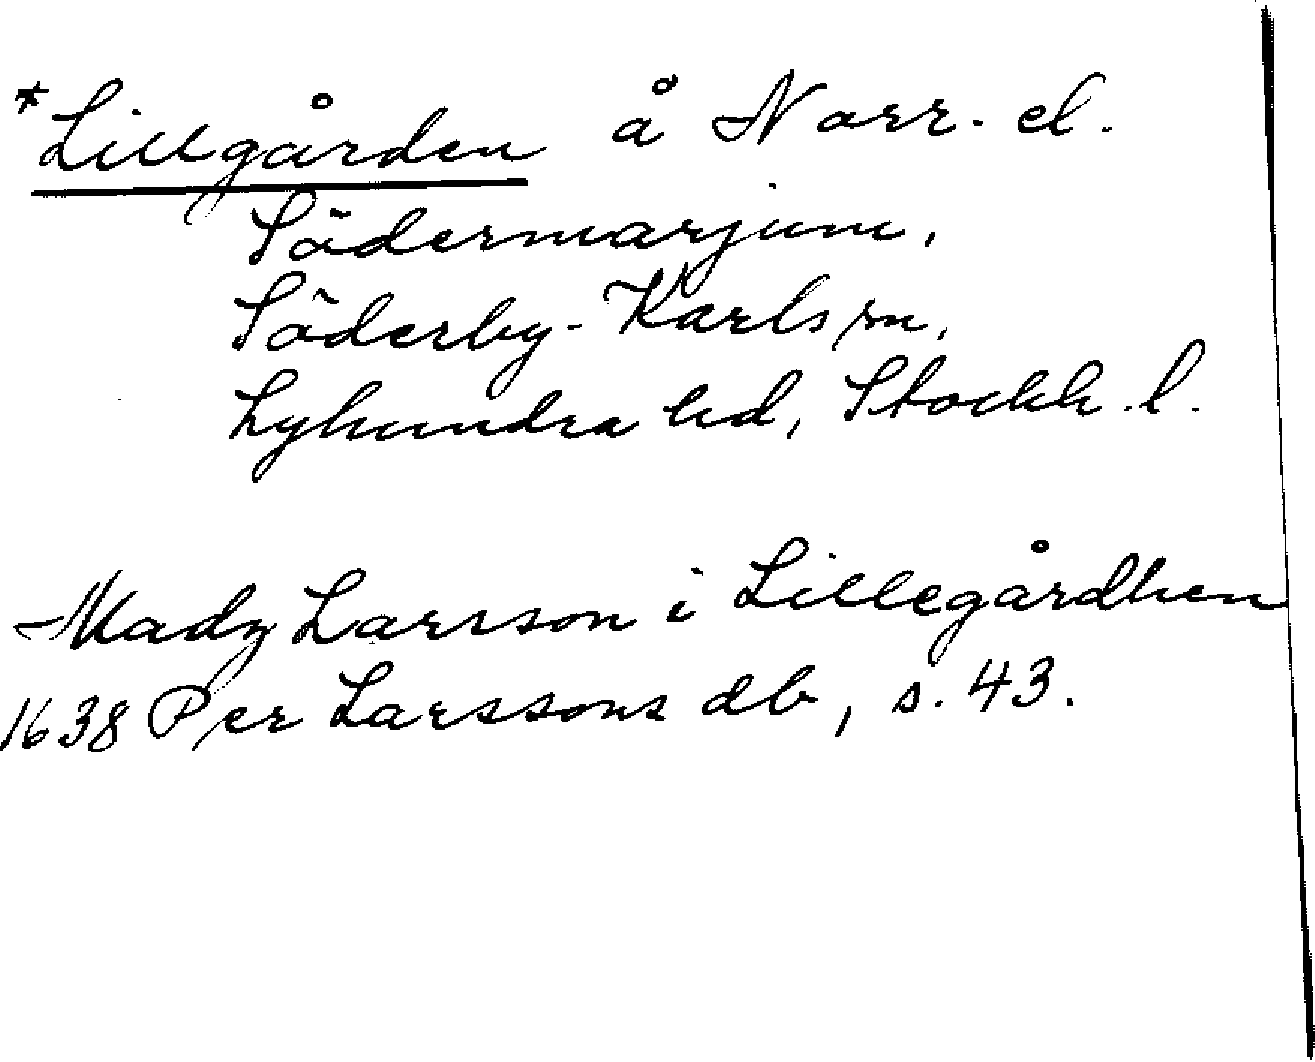 *Lillgården å Norr- el.
Södermarjum,
Söderby-Karls sn,
Lyhundra hd, Stockh. l.
Madz Larsson i Lillegårdhen
1638 Per Larssons db, s. 43.